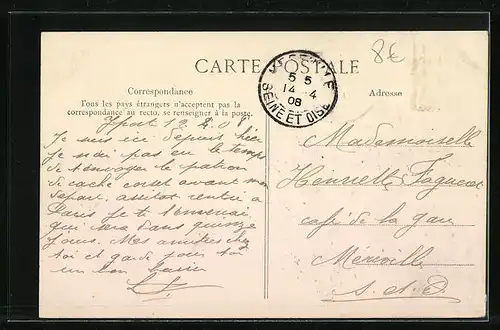 8€
CARTE POSTALE
SEINE ET OISE
5 5
14 - 4
08
Correspondance
Tous les pays étrangers n'acceptent pas la
correspondance au recto, se renseigner à la poste.
Adresse
Yport 12.4.08
Je suis ici depuis hier
Je n'ai pas eu le temps
de t'envoyer le patron
de cache corset avant mon
départ, aussitôt rentré à
Paris je te
qui sera dans quinze
jours. Mes amitiés chez
toi et garde pour toi
un bon baiser
Mademoiselle
Henriette
café de la gare
Méréville
S. et O.